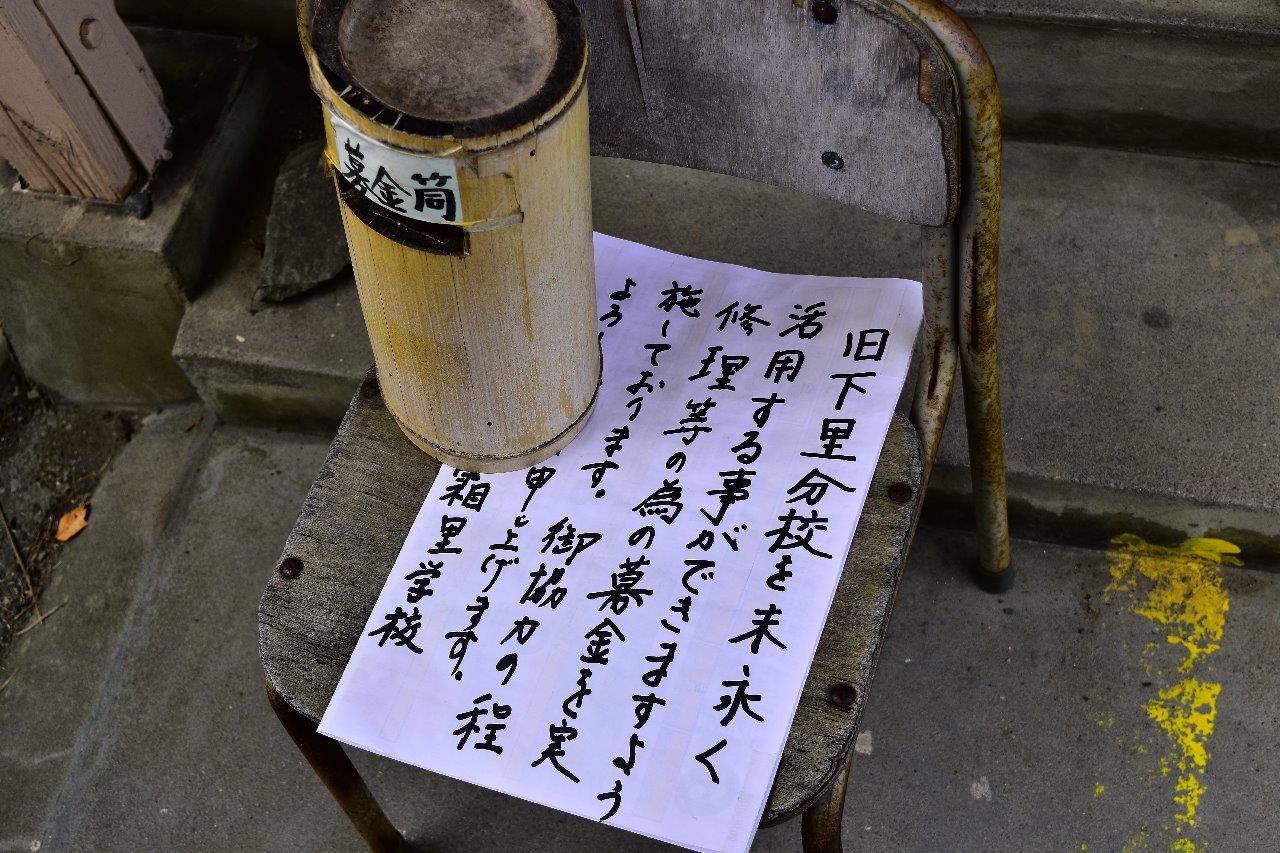 募金筒
旧下里分校を末永く
活用する事ができますよう
修理等の為の募金を実
施しております。御協力の程
よろ
申し上げます。
霜里学校